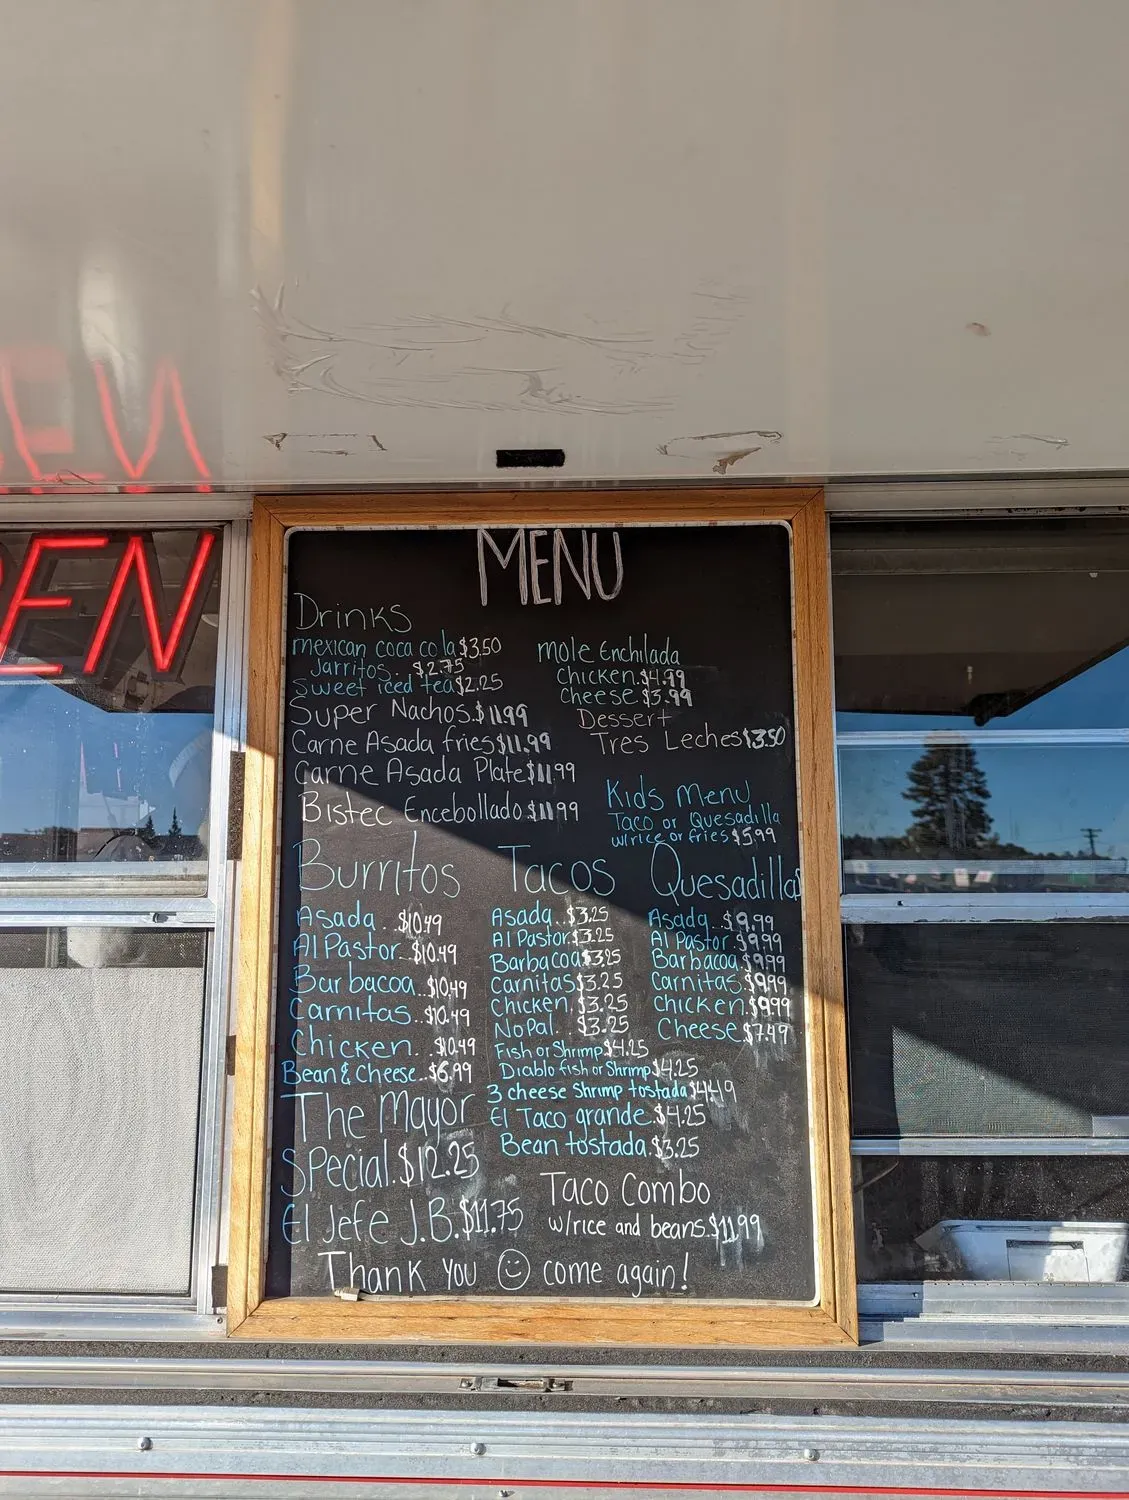 EN
MENU
Drinks
mexican coca cola $3.50
Jarritos.. $2.75
Sweet iced tea $2.25
Super Nachos.$11.99
Carne Asada fries $11.99
Carne Asada Plate $11.99
Bistec Encebollado.$11.99
mole Enchilada
Chicken.$4.99
Cheese.$3.99
Dessert
Tres Leches $3.50
Kids Menu
Taco or Quesadilla
w/rice or fries $5.99
Burritos
Asada..$10.49
Al Pastor..$10.49
Barbacoa..$10.49
Carnitas..$10.49
Chicken..$10.49
Bean & Cheese..$6.99
The Mayor
Special.$12.25
El Jefe J.B.$11.75
Tacos
Asada..$3.25
Al Pastor.$3.25
Barbacoa.$3.25
Carnitas.$3.25
Chicken.$3.25
Nopal..$3.25
Fish or Shrimp.$4.25
Diablo fish or Shrimp $4.25
3 cheese Shrimp tostada $4.49
El Taco grande.$4.25
Bean tostada.$3.25
Quesadillas
Asada..$9.99
Al Pastor.$9.99
Barbacoa.$9.99
Carnitas.$9.99
Chicken.$9.99
Cheese.$7.49
Taco Combo
w/rice and beans.$11.99
Thank you ☺ come again!